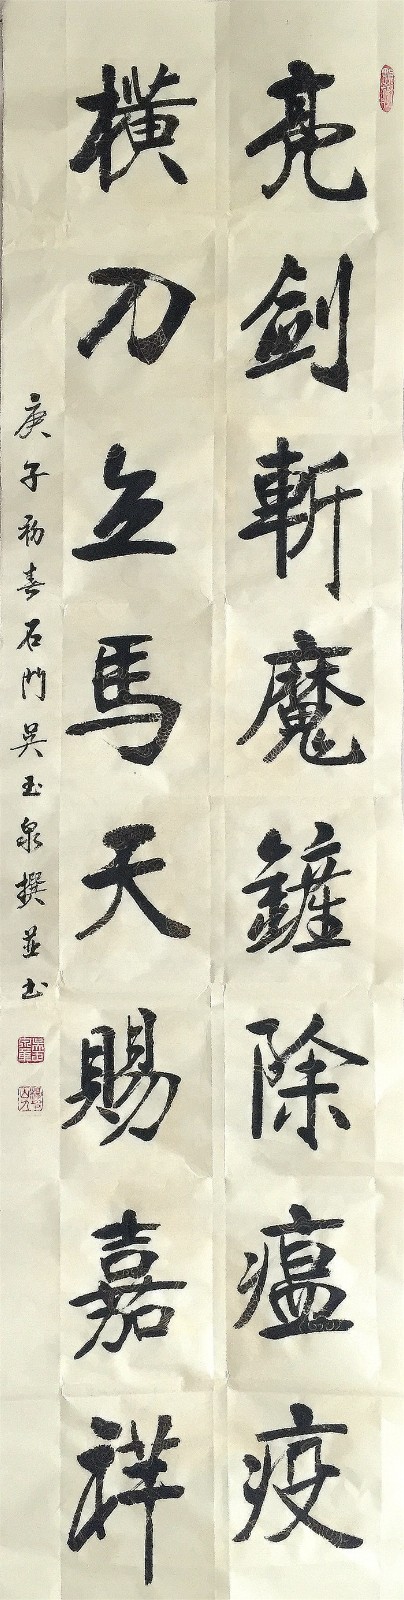 亮劍斬魔鏟除瘟疫
横刀立馬天賜嘉祥
庚子初春石門吳玉泉撰並书